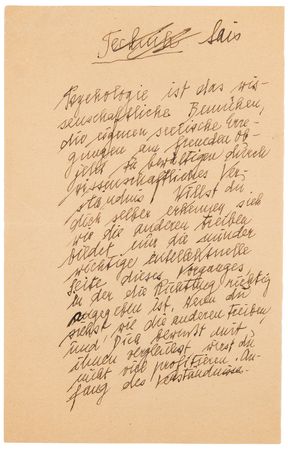 Technik Sais
Psychologie ist das wis-
senschaftliche Bemühen,
die eigenen seelische Erre-
gungen am fremden Ob-
jekt zu bewältigen durch
wissenschaftliches Ver-
ständnis. Willst du
dich selber erkennen sich
wie die anderen treiben
bildet nur die minder
wichtige intellektuelle
Seite dieses Vorganges
in der die Richtung richtig
angegeben ist. Wenn du
siehst, wie die anderen treiben,
und Dich bewusst mit
ihnen vergleichst wirst du
nicht viel profitieren. An-
fang des Verständniss